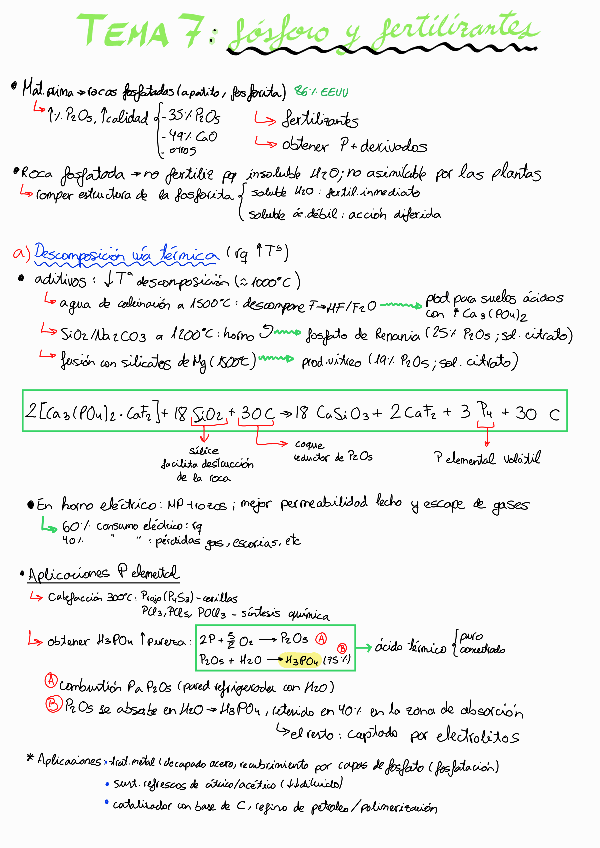 TEMA 7: fósforo y fertilizantes
• Mat. prima → rocas fosfatadas (apatito, fosforita) 86% EEUU
↳ ↑% P2O5, ↑calidad { - 35% P2O5 ↳ fertilizantes
- 49% CaO ↳ obtener P + derivados
- otros
• Roca fosfatada → no fertiliz pq insoluble H2O; no asimilable por las plantas
↳ romper estructura de la fosforita { soluble H2O: fertil. inmediato
soluble ác. débil: acción diferida
a) Descomposición vía térmica (rq ↑Tª)
• aditivos: ↓Tª descomposición (≈1000°C)
↳ agua de calcinación a 1500°C: descompone F → HF/F2O → prod para suelos ácidos
con ↑ Ca3(PO4)2
↳ SiO2/Na2CO3 a 1200°C: horno → fosfato de Renania (25% P2O5; sol. citrato)
↳ fusión con silicatos de Mg (1500°C) → prod. vítreo (19% P2O5; sol. citrato)
2[Ca3(PO4)2 · CaF2] + 18 SiO2 + 30 C → 18 CaSiO3 + 2 CaF2 + 3 P4 + 30 C
sílice coque P elemental volátil
facilita destrucción reductor de P2O5
de la roca
• En horno eléctrico: MP trozos; mejor permeabilidad lecho y escape de gases
↳ 60% consumo eléctrico: rq
40% " " : pérdidas gas, escorias, etc
• Aplicaciones P elemental
↳ Calefacción 300°C: Projo (P4S3) - cerillas
PCl3, PCl5, POCl3 - síntesis química
↳ obtener H3PO4 ↑pureza: 2P + 5/2 O2 → P2O5 (A)
P2O5 + H2O → H3PO4 (75%) (B) → ácido térmico { puro
concentrado
(A) Combustión P a P2O5 (pared refrigerada con H2O)
(B) P2O5 se absorbe en H2O → H3PO4, retenido en 40% en la zona de absorción
↳ el resto: captado por electrolitos
* Aplicaciones • trat. metal (decapado acero, recubrimiento por capas de fosfato (fosfatación)
• sust. refrescos de cítrico/acético (↓↓diluido)
• catalizador con base de C, refino de petróleo/polimerización